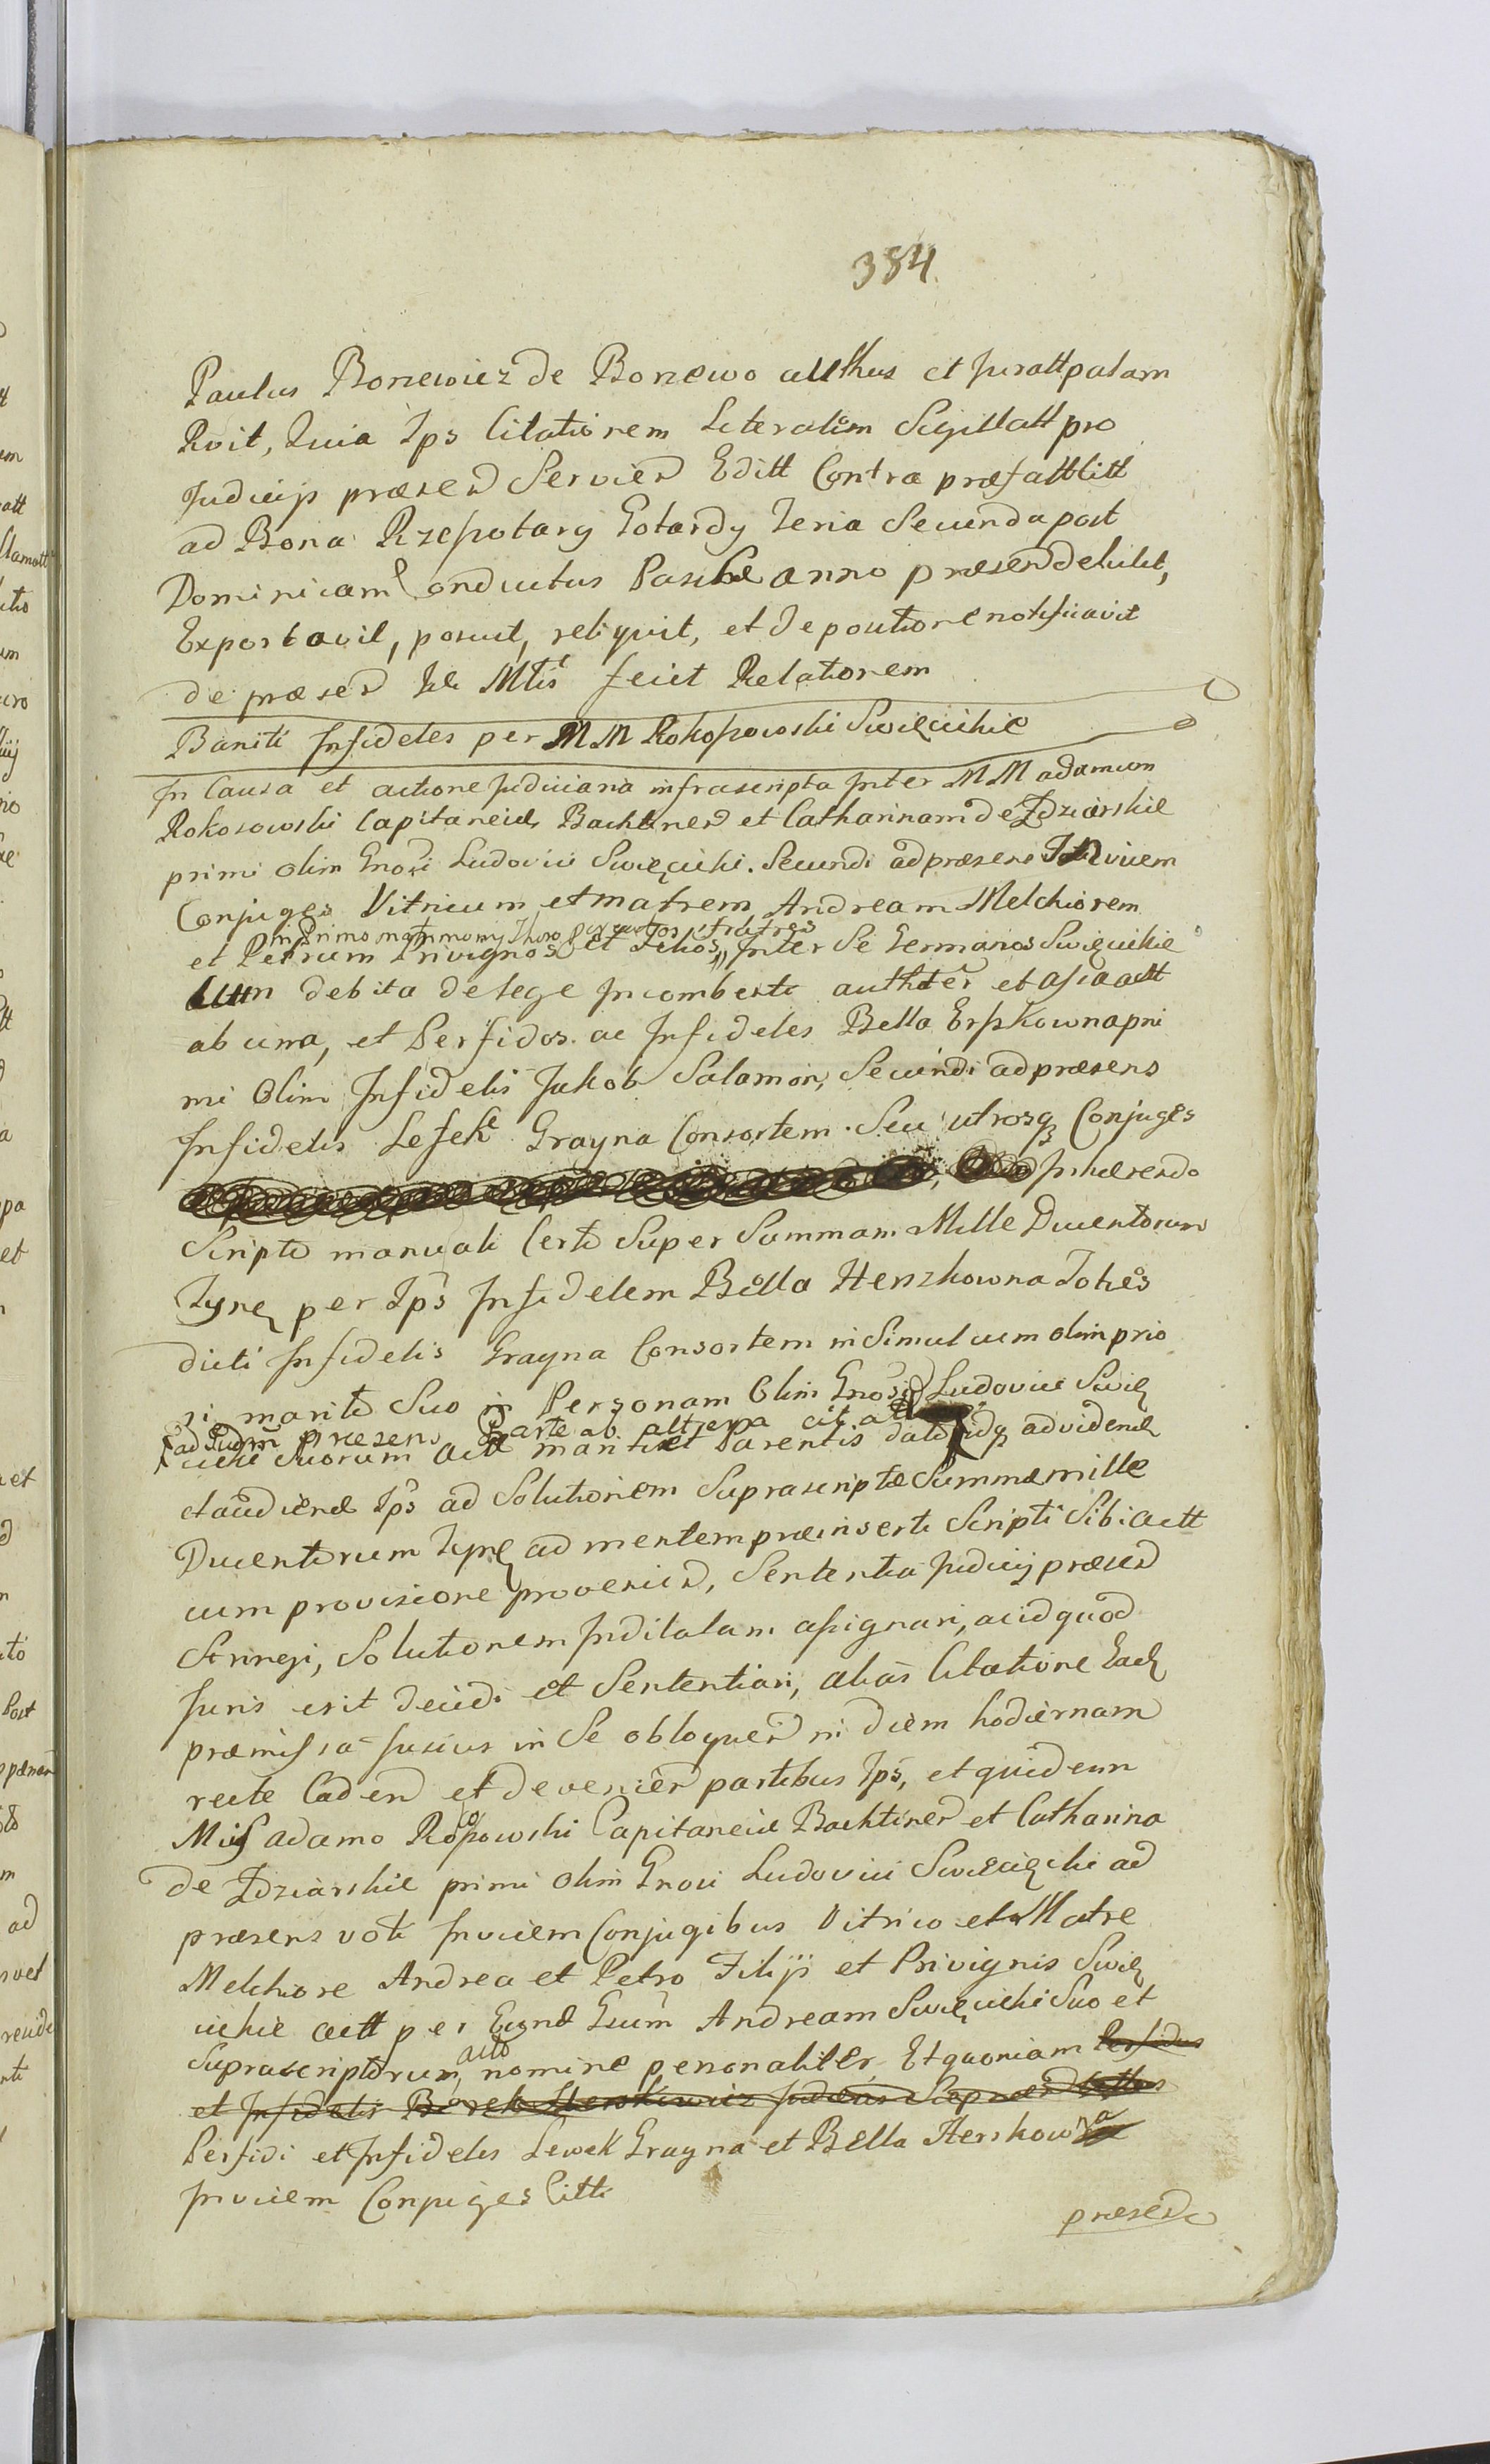 384
Paulus Boniewicz de Boniewo autthus et Juratt palam
Rvit, Quia Ips Citationem Literatim Sigillatt pro
Judicijs præsen Servien Editt Contra præfatt Citt
ad Bona Rzepotary Gotardy feria Secunda post
Dominicam Conductus Paschæ anno præsen detulit,
Exportavit, posuit, reliquit, et de positione notificavit
de præsen fecit Relationem
Baniti Infideles per MM Rokossowski Swięcickie
In Causa et actione Judiciaria infrascripta Inter MM adamum
Rokosowski Capitaneid Bachtinen et Catharinam de Zdziarskie
primi olim Gnosi Ludovici Swięcicki. Secundi ad præsens Invicem
Conjuges Vitricum et matrem Andream Melchiorem
in Primo matrimonij Thoro fratres
et Petrum Privignos et Filios Inter Se Germanos Swięcickie
Cum debita de lege Incombenti auththte et asia actt
ab una, et Perfidos. ac Infideles Bella Erszkowna pri
mi Olim Infidelis Jakob Salamon, Secundi ad præsens
Infidelis Lefek Grayna Consortem. Seu utrosq Conjuges
Inhærendo
Scripto manuali Certo Super Summam Mille Ducentorum
Tynf per Ips Infidelem Bella Herszkowna Toties
dicti Infidelis Grayna Consortem in Simul cum olim prio
ri marito Suo in Personam Olim Gnosi Ludovici Swię
ad Judm præsens Parte ab altrera citat
cicki Suorum actt mariti et Parentis dato idq ad vidend
et audiend Ips ad Solutionem Suprascriptæ Summæ mille
Ducentorum Tynf ad mentem præinserti Scripti Sibi actt
cum provisione provenien, Sententia Judicij præsen
Stringi, Solutionem Inditatam assignari, ac id quod
Juris erit decidi et Sententiari, alias Citatione Ead
præmissa fusius in Se obloquen in diem hodiernam
recte Caden et devenien partibus Ips, et quidem
Mcis adamo Rokosowski Capitaneid Bachtinen et Catharina
de Zdziarskie primi olim Gnosi Ludovici Swięcicki ad
præsens voti Invicem Conjugibus Vitrico et Matre
Melchiore Andrea et Petro Filijs et Privignis Swię
cickie actt per Eund Gsum Andream Swięcicki Suo et
acto
Suprascriptorum nomine personaliter, Et quoniam Perfidus
et Infidelis Berek Herszkiewicz Judæus
Perfidi et Infideles Lewek Grayna et Bella Herszkowna
Invicem Conjuges Citti
præsen